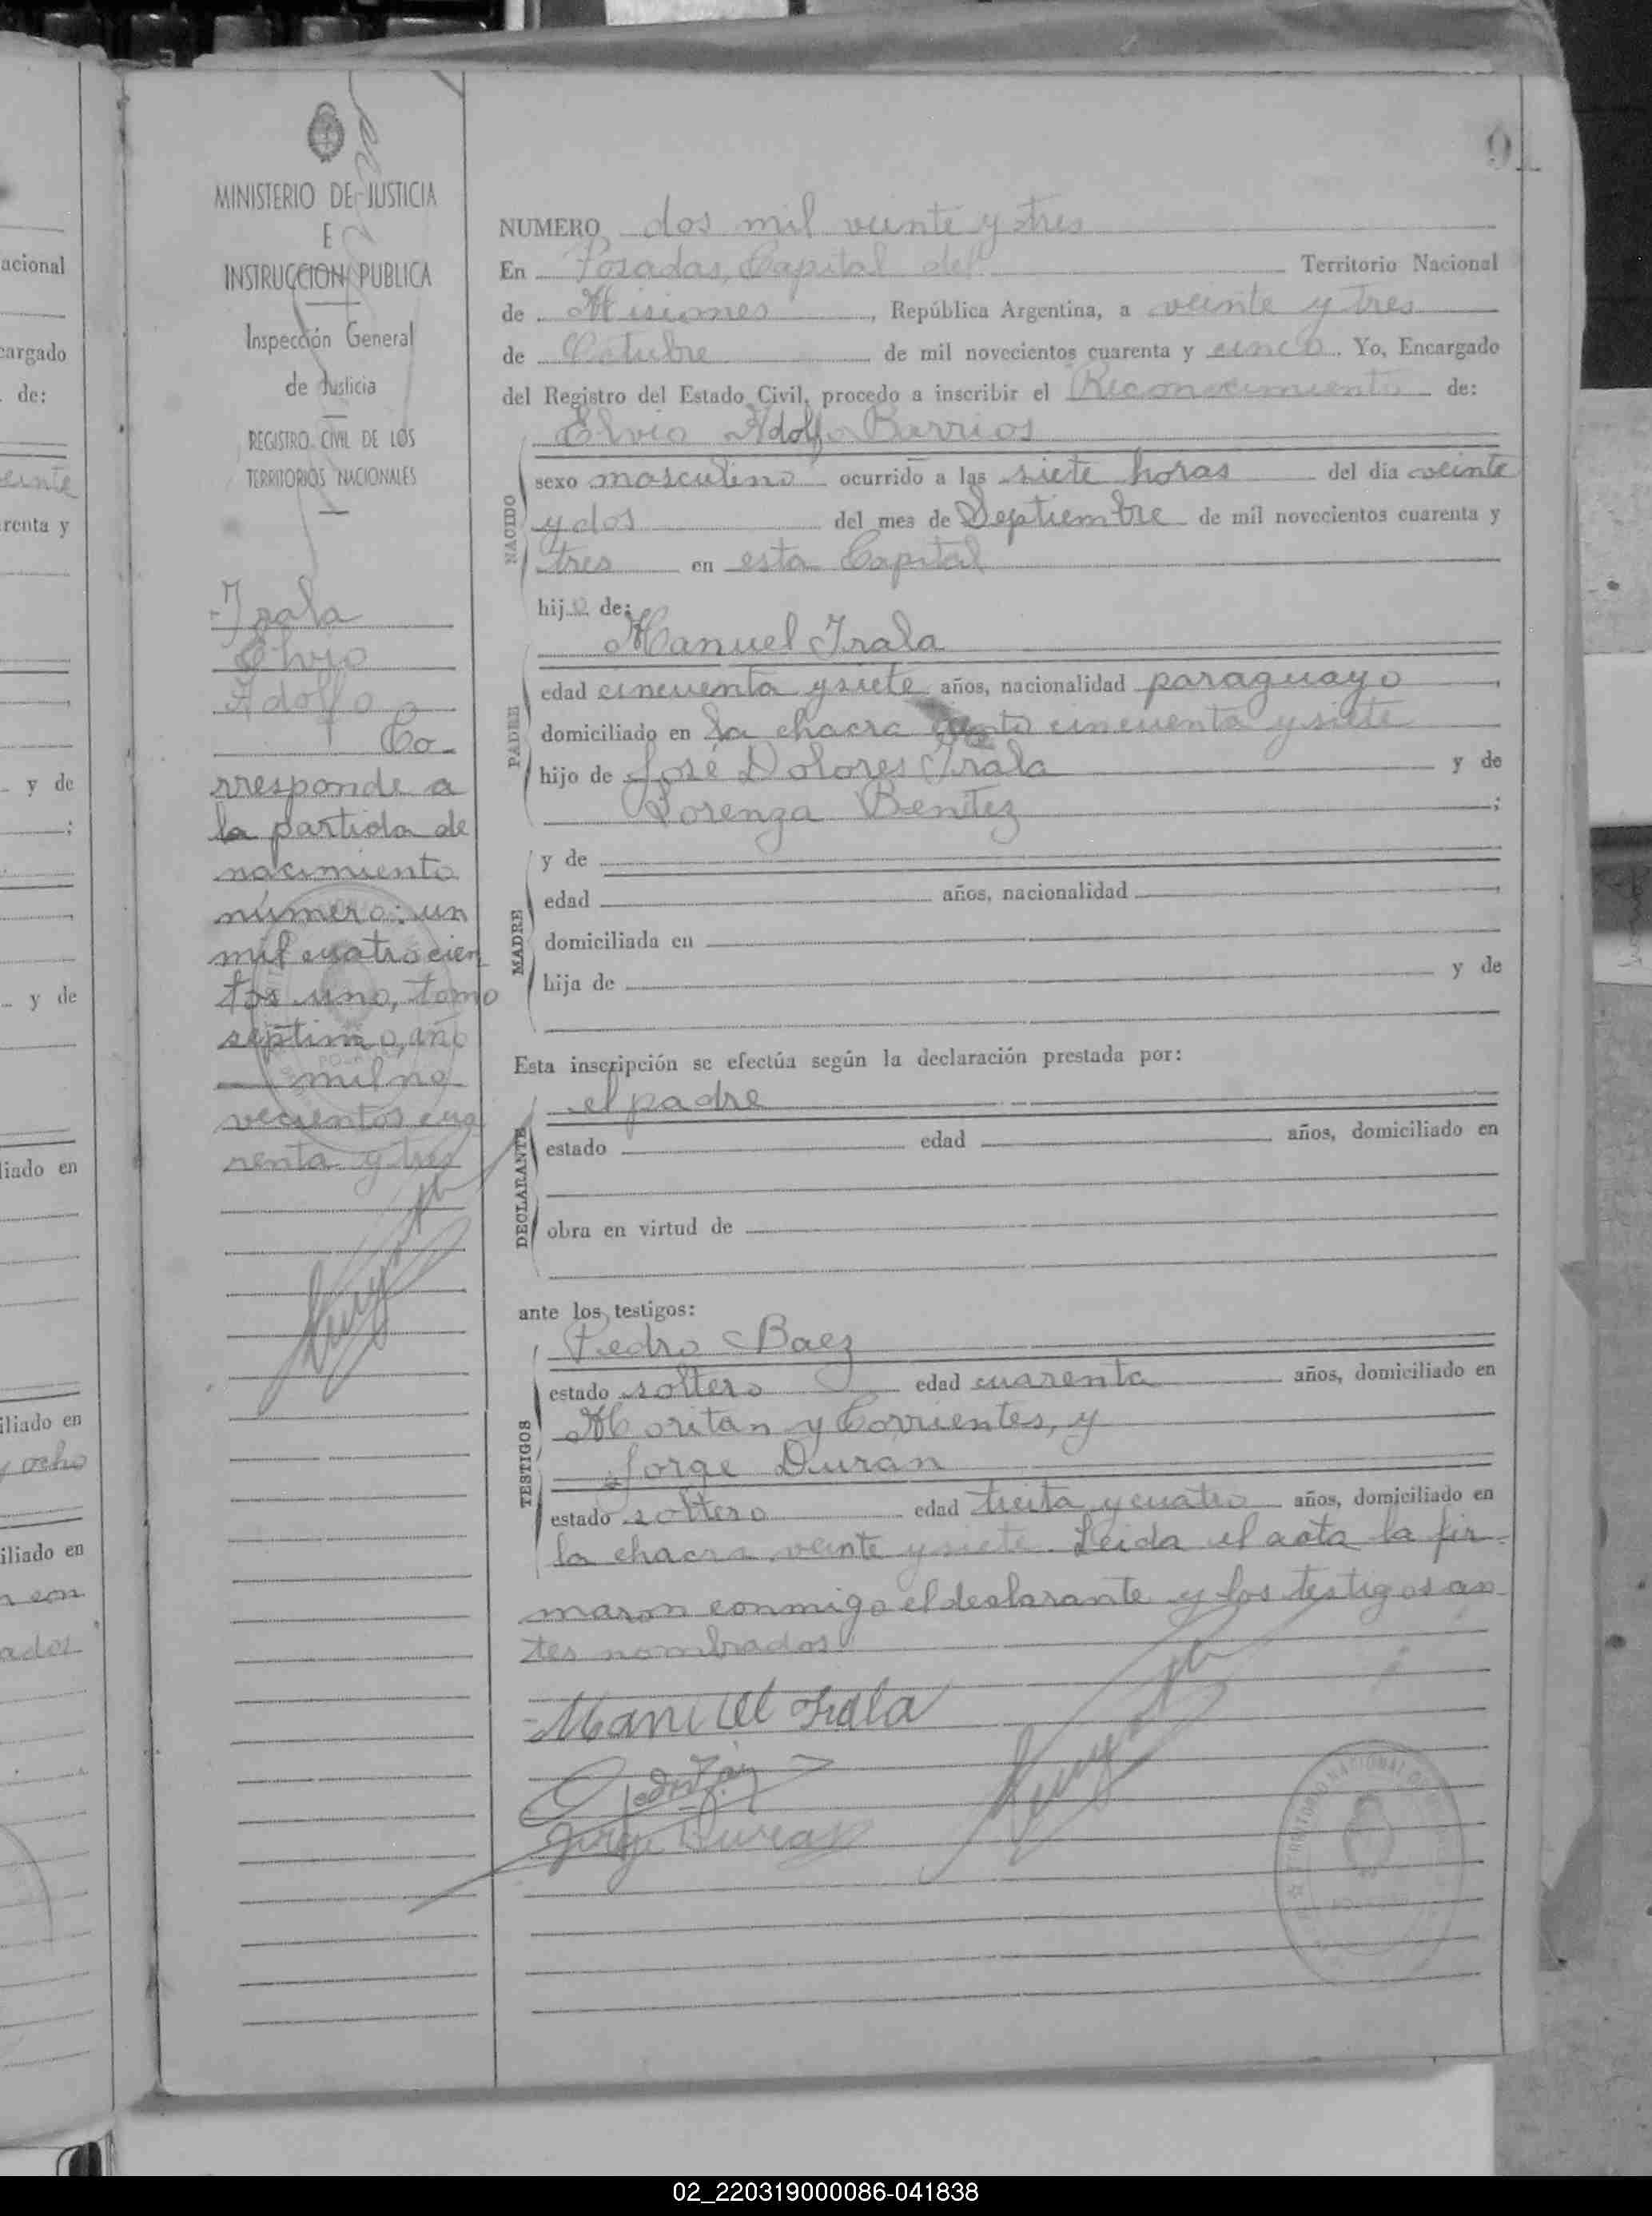 91
MINISTERIO DE JUSTICIA
E
INSTRUCCION PUBLICA
Inspección General
de Justicia
REGISTRO CIVIL DE LOS
TERRITORIOS NACIONALES
Irala
Elvio
Adolfo
Co-
rresponde a
la partida de
nacimiento
número: un
mil cuatrocien
tos uno, tomo
septimo, año
mil no
vecientos cua
renta y tres
NUMERO dos mil veinte y tres
En Posadas, Capital del Territorio Nacional
de Misiones, República Argentina, a veinte y tres
de Octubre de mil novecientos cuarenta y cinco. Yo, Encargado
del Registro del Estado Civil, procedo a inscribir el Reconocimiento de:
Elvio Adolfo Barrios
NACIDO
sexo masculino ocurrido a las siete horas del día veinte
y dos del mes de Septiembre de mil novecientos cuarenta y
tres en esta Capital
hijo de:
Manuel Irala
PADRE
edad cincuenta y siete años, nacionalidad paraguayo,
domiciliado en la chacra ciento cincuenta y siete
hijo de José Dolores Irala y de
Lorenza Benitez;
MADRE
y de
edad años, nacionalidad
domiciliada en
hija de y de
Esta inscripción se efectúa según la declaración prestada por:
el padre
DECLARANTE
estado edad años, domiciliado en
obra en virtud de
ante los testigos:
Pedro Baez
TESTIGOS
estado soltero edad cuarenta años, domiciliado en
Moritan y Corrientes, y
Jorge Duran
estado soltero edad treita y cuatro años, domiciliado en
la chacra veinte y siete. Leida el acta la fir-
maron conmigo el declarante y los testigos an-
tes nombrados.
Manuel Irala
Pedro Baez
Jorge Duran
TERRITORIO NACIONAL DE
acional
cargado
de:
veinte
renta y
y de
y de
liado en
iliado en
y ocho
iliado en
n con
ados
02_220319000086-041838